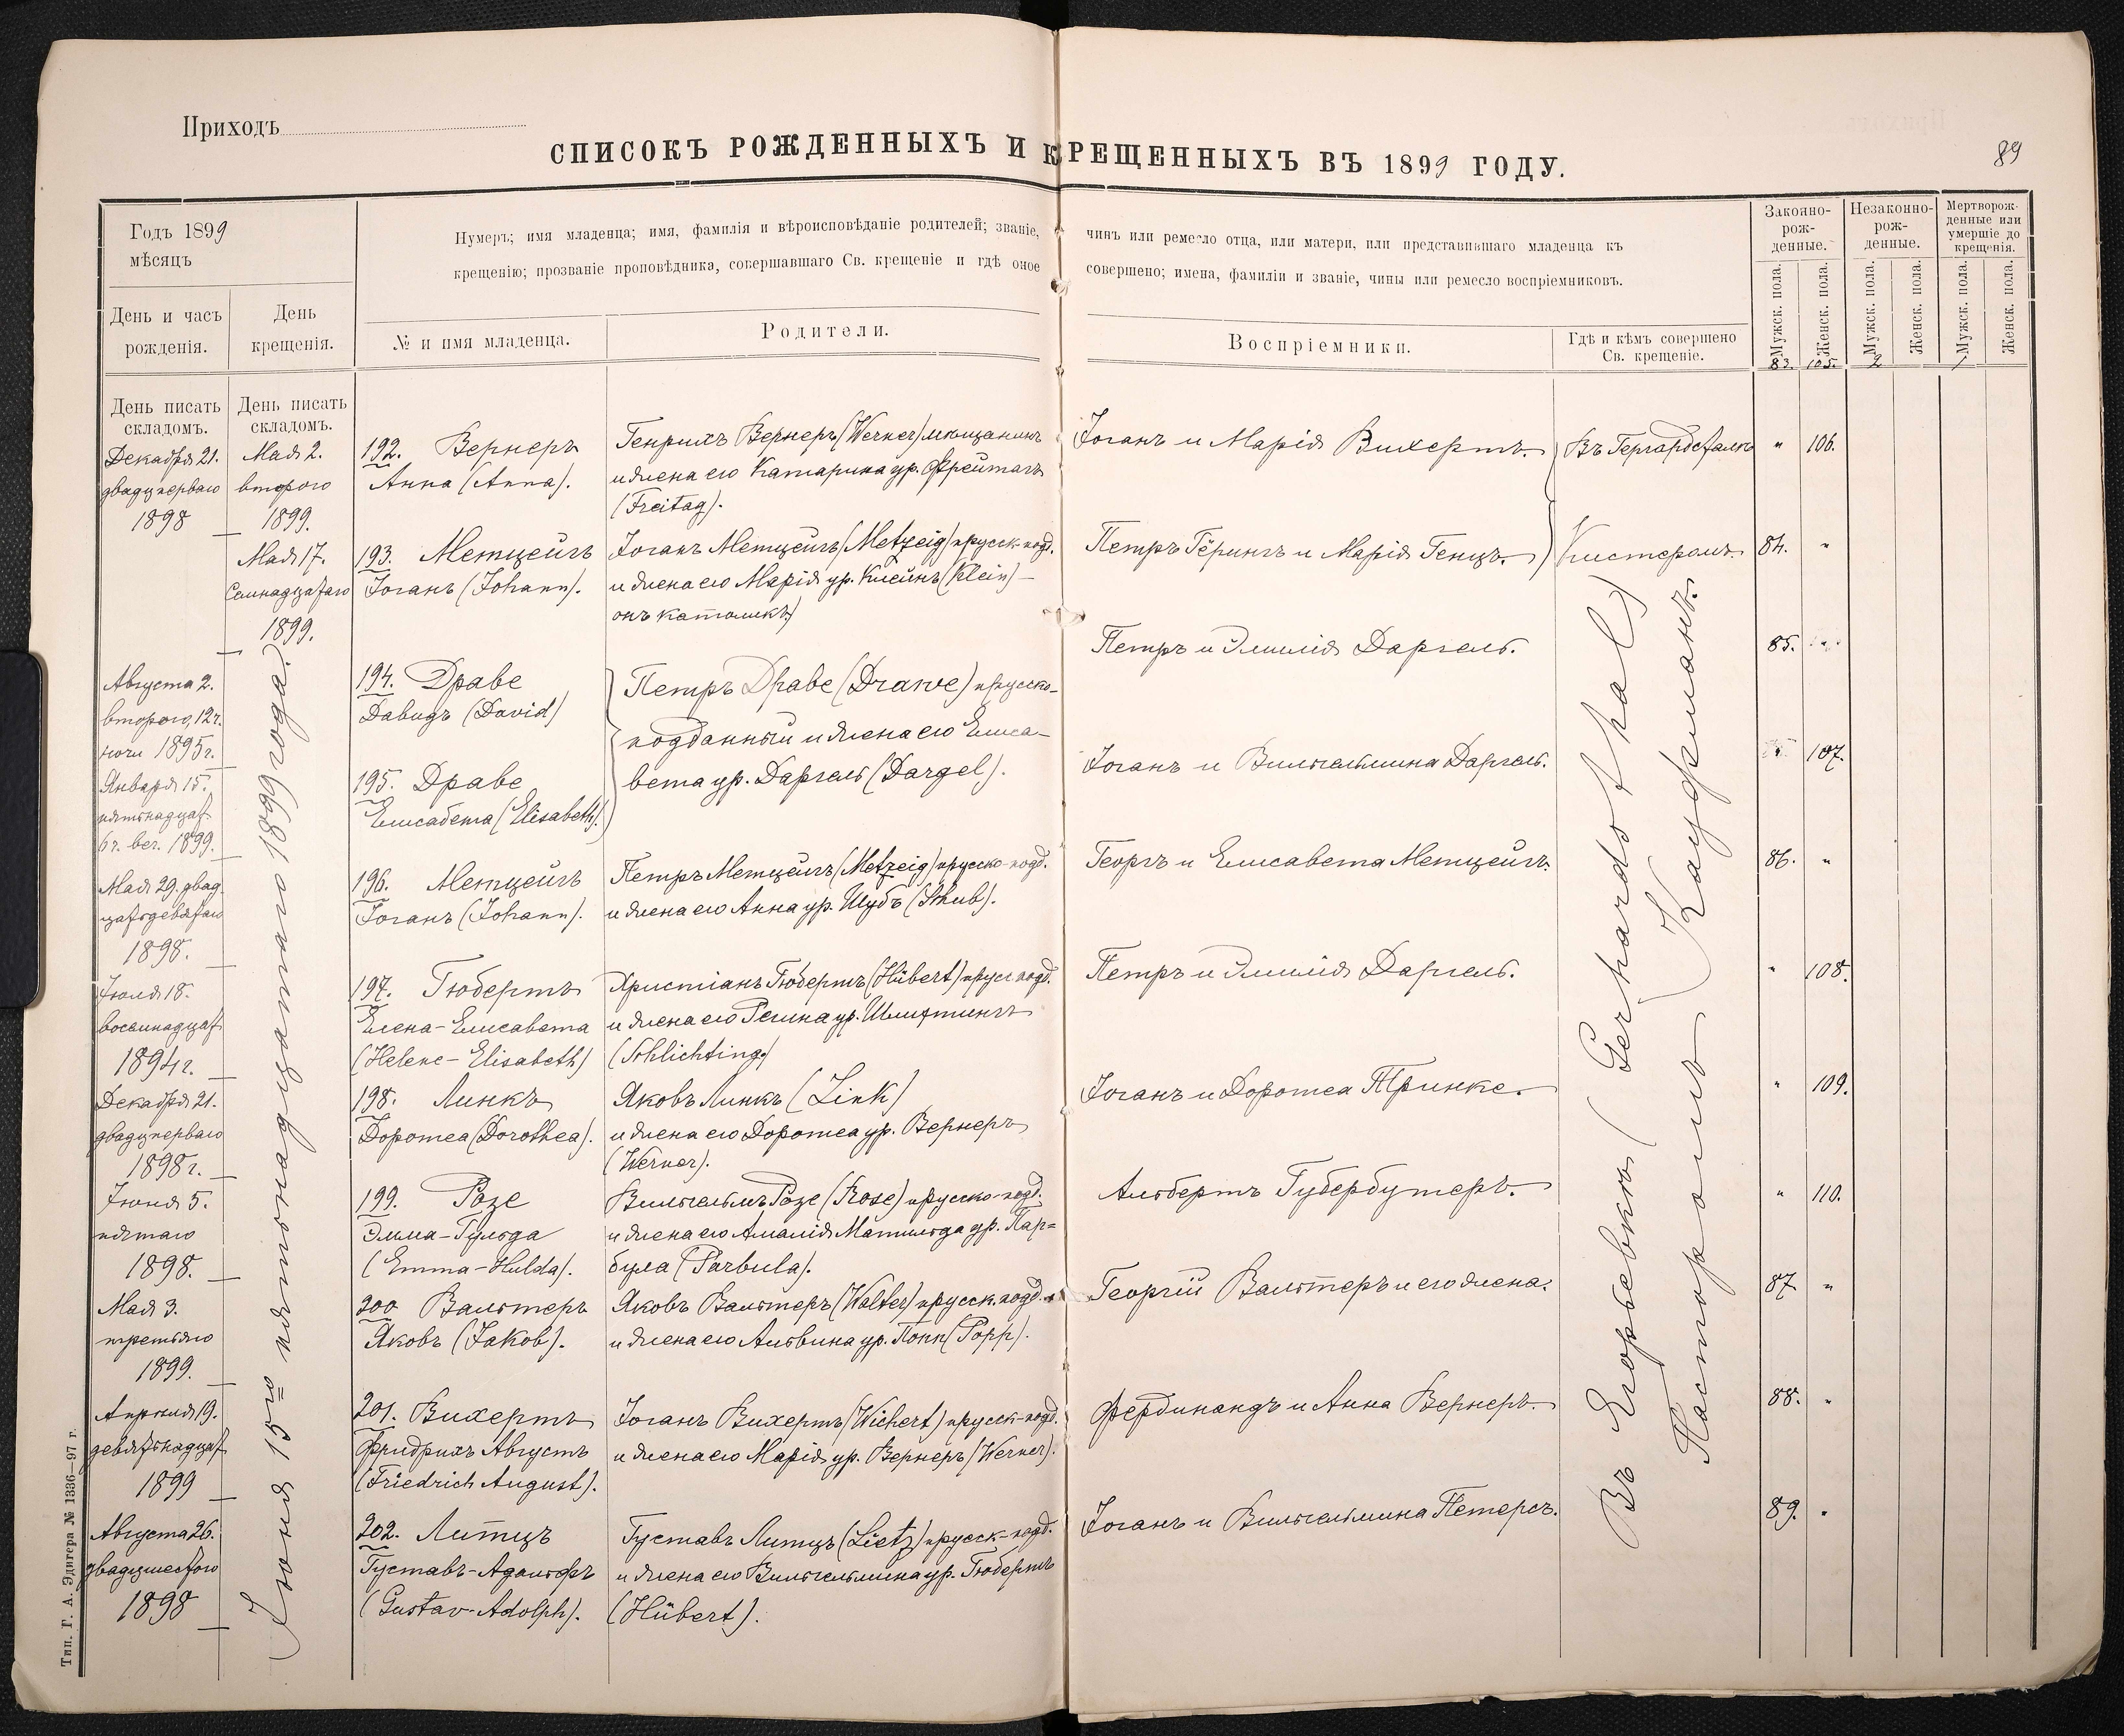 Приходъ
СПИСОКЪ РОЖДЕННЫХЪ И КРЕЩЕННЫХЪ ВЪ 1899 ГОДУ.
89
Годъ 1899
мѣсяцъ
День и часъ
рожденія.
День
крещенія.
Нумеръ; имя младенца; имя, фамилія и вѣроисповѣданіе родителей; званіе, чинъ или ремесло отца, или матери, или представившаго младенца къ
крещенію; прозваніе проповѣдника, совершавшаго Св. крещеніе и гдѣ оное совершено; имена, фамиліи и званіе, чины или ремесло воспріемниковъ.
№ и имя младенца.
Родители.
Воспріемники.
Гдѣ и кѣмъ совершено
Св. крещеніе.
Законно-
рож-
денные.
Незаконно-
рож-
денные.
Мертворож-
денные или
умершіе до
крещенія.
Мужск. пола.
Женск. пола.
Мужск. пола.
Женск. пола.
Мужск. пола.
Женск. пола.
83. 105. 2 1
День писать
складомъ.
День писать
складомъ.
Декабря 21.
двадцперваго
1898
Мая 2.
второго
1899.
192. Вернеръ
Анна (Anna).
Генрихъ Вернеръ (Werner) мѣщанинъ
и жена его Катарина ур. Фрейтагъ
(Freitag).
Іоганъ и Марія Вихертъ.
Въ Гергардсталѣ
" 106.
Мая 17.
Семнадцатаго
1899.
193. Метцейгъ
Іоганъ (Johann).
Іоганъ Метцейгъ (Metzeig) прусск-подд.
и жена его Марія ур. Клейнъ (Klein) —
онъ католикъ)
Петръ Гёрингъ и Марія Генцъ.
Кистеромъ.
84. "
Августа 2.
второго, 12 ч.
ночи 1895 г.
194. Драве
Давидъ (David)
Петръ Драве (Drawe) прусско-
подданный и жена его Елиса-
вета ур. Даргель (Dargel).
Петръ и Эмилія Даргель.
85.
Января 15.
пятнадцат.
6 ч. веч. 1899.
195. Драве
Елисабета (Elisabeth).
Іоганъ и Вильгельмина Даргель.
107.
Мая 29. двад-
цатьдевятаго
1898.
196. Метцейгъ
Іоганъ (Johann).
Петръ Метцейгъ (Metzeig) прусско-подд.
и жена его Анна ур. Шубъ (Schub).
Георгъ и Елисавета Метцейгъ.
86. "
Іюля 18.
восемнадцат
1894 г.
197. Гюбертъ
Елена-Елисавета
(Helene-Elisabeth)
Христіанъ Гюбертъ (Hübert) прус. подд.
и жена его Регина ур. Шлихтингъ
(Schlichting)
Петръ и Эмилія Даргель.
" 108.
Декабря 21.
двадцперваго
1898 г.
198. Линкъ
Доротеа (Dorothea).
Яковъ Линкъ (Link)
и жена его Доротеа ур. Вернеръ
(Werner).
Іоганъ и Доротеа Тринке.
" 109.
Іюня 5.
пятаго
1898.
199. Розе
Эмма-Гульда
(Emma-Hulda).
Вильгельмъ Розе (Rose) прусско-подд.
и жена его Амалія Матильда ур. Пар-
була (Parbula).
Альбертъ Губербутеръ.
" 110.
Мая 3.
третьяго
1899.
200 Вальтеръ
Яковъ (Jakob).
Яковъ Вальтеръ (Walter) прусск. подд.
и жена его Альвина ур. Поппъ (Popp).
Георгій Вальтеръ и его жена.
87 "
Апрѣля 19.
девятнадцат
1899
201. Вихертъ
Фридрихъ Августъ
(Friedrich August).
Іоганъ Вихертъ (Wichert) прусск-подд.
и жена его Марія ур. Вернеръ (Werner).
Фердинандъ и Анна Вернеръ.
88. "
Августа 26.
двадцшестого
1898
202. Литцъ
Густавъ-Адольфъ
(Gustav-Adolph).
Густавъ Литцъ (Lietz) прусск-подд.
и жена его Вильгельмина ур. Гюбертъ
(Hübert).
Іоганъ и Вильгельмина Петерсъ.
89. "
Іюня 15го пятнадцатаго 1899 года.
Въ Егорьевкѣ (Gerhardsthal)
Пасторомъ Кауфманъ.
Тип. Г. А. Эдигера № 1336—97 г.